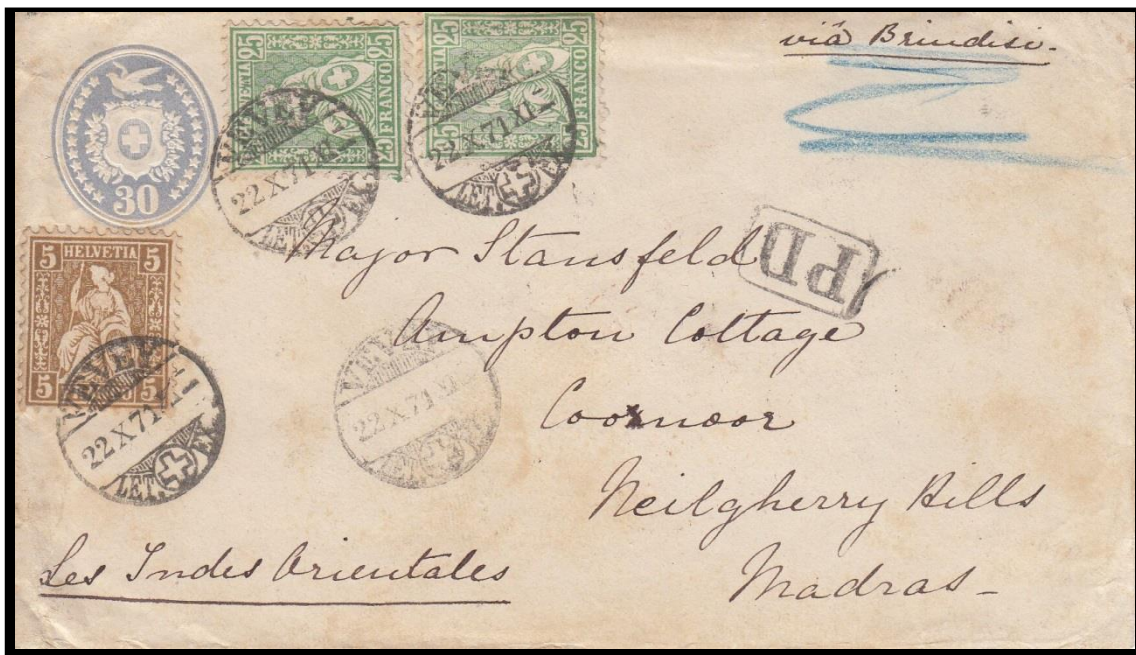 viâ Brindisi.
25 HELVETIA 25
25 FRANCO 25
25 HELVETIA 25
25 FRANCO 25
30
VEVEY
22 X 71 XI
LET. EX.
VEVEY
22 X 71 XI 1
LET. EX.
PD
5 HELVETIA 5
5 5
VEVEY
22 X 71 XI 1
LET. EX.
VEVEY
22 X 71 XI
LET. EX.
Major Stansfeld
Ampton Cottage
Coonoor
Neilgherry Hills
Madras -
Les Indes Orientales